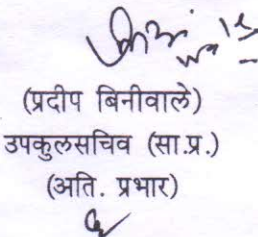 (प्रदीप बिनीवाले)
उपकुलसचिव (सा.प्र.)
(अति. प्रभार)